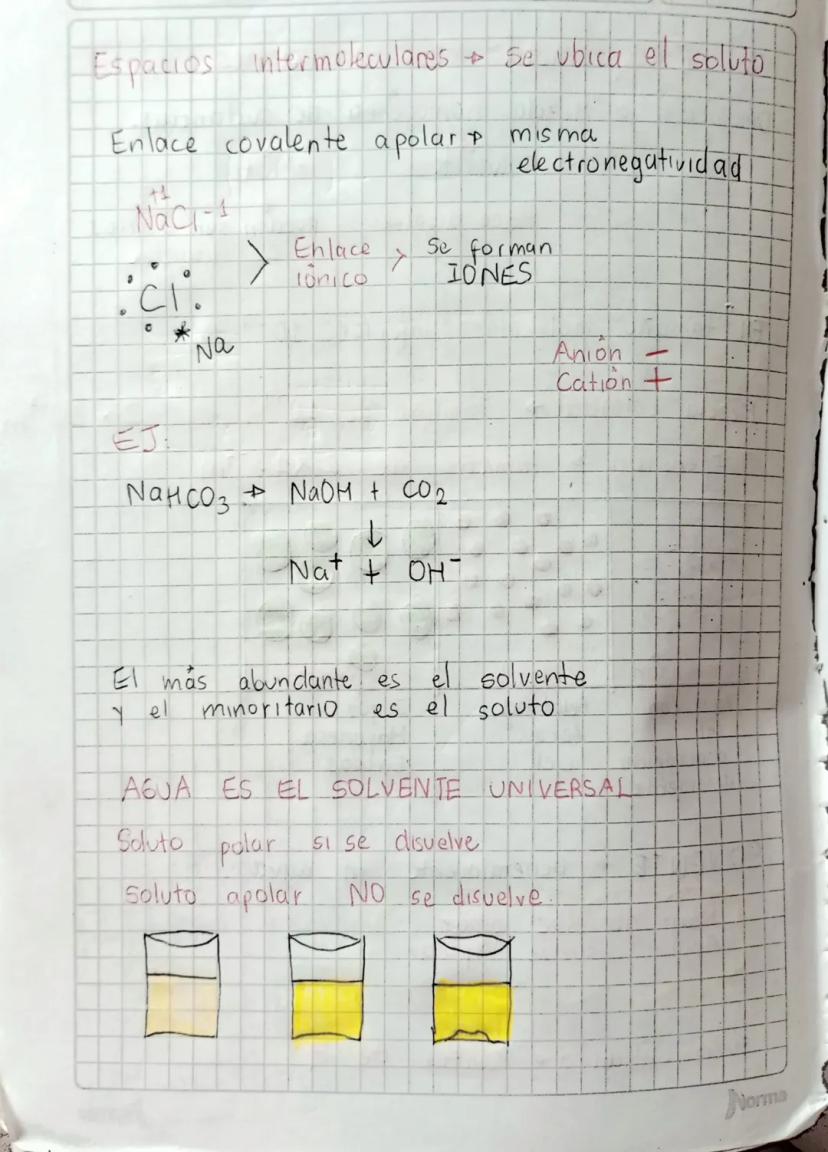 Espacios intermoleculares → se ubica el soluto
Enlace covalente apolar → misma
electronegatividad
+1
NaCl-1
Enlace > Se forman
iónico IONES
Cl
* Na
Anión -
Catión +
EJ:
NaHCO₃ → NaOH + CO₂
↓
Na⁺ + OH⁻
El más abundante es el solvente
y el minoritario es el soluto
AGUA ES EL SOLVENTE UNIVERSAL
Soluto polar si se disuelve
Soluto apolar NO se disuelve.
Norma